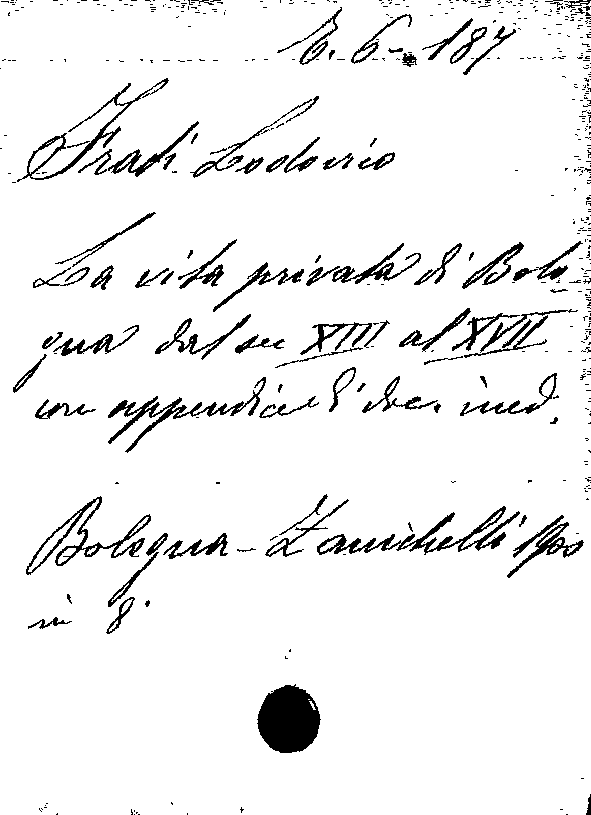 E. 6 - 187
Frati Lodovico
La vita privata di Bolo-
gna dal sec XIII al XVII
con appendice di doc. ined.
Bologna - Zanichelli 1900
in 8°